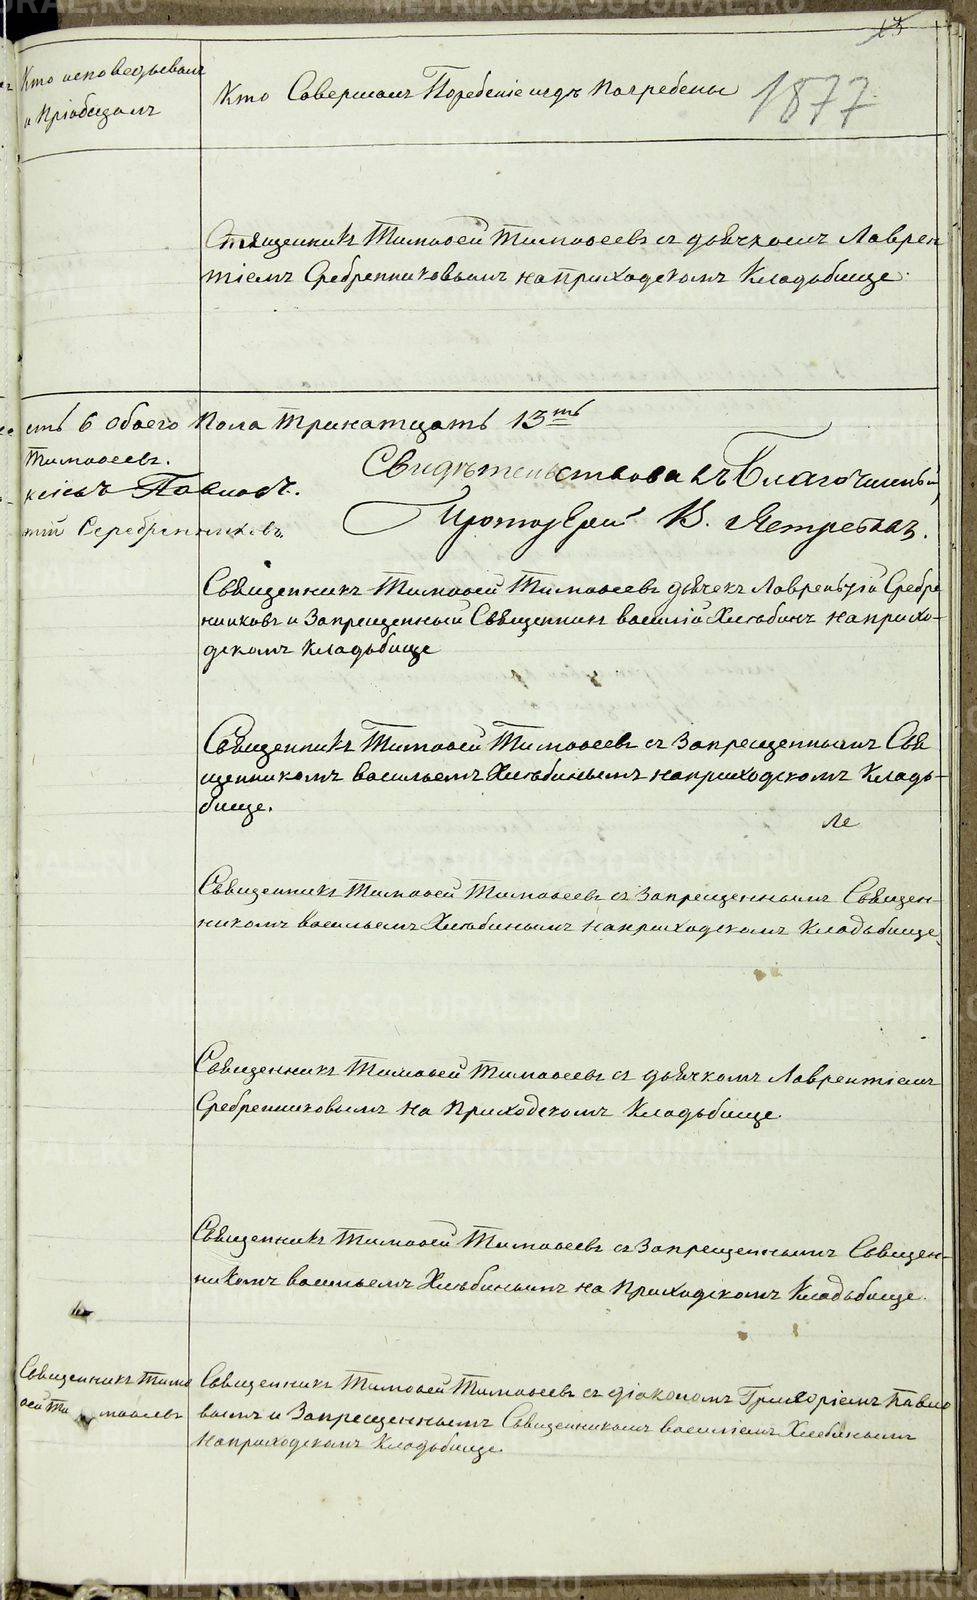 15
Кто исповедывалъ
и Пріобщалъ
Кто Совершалъ Погребеніе и гдѣ Погребены
1877
Священникъ Тимоѳей Тимоѳеевъ съ дьячкомъ Лаврен
тіемъ Сребренниковымъ на приходскомъ Кладьбище.
6 обоего Пола Тринатцать 13ть
Тимоѳеевъ.
Павловъ.
тій Серебренниковъ.
Свидѣтельствовалъ Благочинный,
Протоіерей В. Ястребовъ.
Священникъ Тимоѳей Тимоѳеевъ дьячекъ Лаврентій Сребре
нниковъ и Запрещенный Священник василій Хлѣбинъ на прихо-
дскомъ Кладьбище
Священникъ Тимоѳей Тимоѳеевъ съ Запрещеннымъ Свя
щенникомъ васильемъ Хлѣбинымъ на приходскомъ Кладь-
бище.
ле
Священникъ Тимоѳей Тимоѳеевъ съ Запрещеннымъ Священ-
никомъ васильемъ Хлѣбинымъ на приходскомъ Кладьбище
Священникъ Тимоѳей Тимоѳеевъ съ дьячкомъ Лаврентіемъ
Сребренниковымъ на Приходскомъ Кладьбище
Священникъ Тимоѳей Тимоѳеевъ съ Запрещеннымъ Священ-
никомъ васильемъ Хлѣбинымъ на Приходскомъ Кладьбище.
Священникъ Тимо
ѳей Ти моѳеевъ
Священникъ Тимоѳей Тимоѳеевъ съ діакономъ Григоріемъ Павло
вымъ и Запрещеннымъ Священникомъ василіемъ Хлебинымъ
на приходскомъ Кладьбище
METRIKI.GASO-URAL.RU